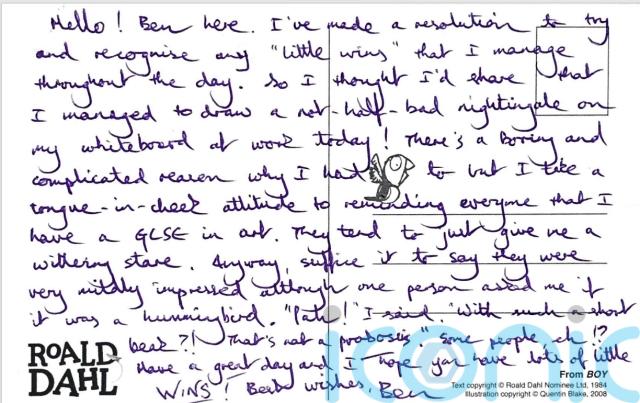 Hello! Ben here. I've made a resolution to try
and recognise any "little wins" that I manage
throughout the day. So I thought I'd share that
I managed to draw a not-half-bad nightingale on
my whiteboard at work today! There's a boring and
complicated reason why I had to but I take a
tongue-in-cheek attitude to reminding everyone that I
have a GCSE in art. They tend to just give me a
withering stare. Anyway, suffice it to say they were
very mildly impressed although one person asked me if
it was a hummingbird. "I said. "With such a short
beak?! That's not a proboscis!" Some people, eh!?
Have a great day and I hope you have lots of little
WINS! Best wishes, Ben
ROALD
DAHL
From BOY
Text copyright © Roald Dahl Nominee Ltd, 1984
Illustration copyright © Quentin Blake, 2008
iconic